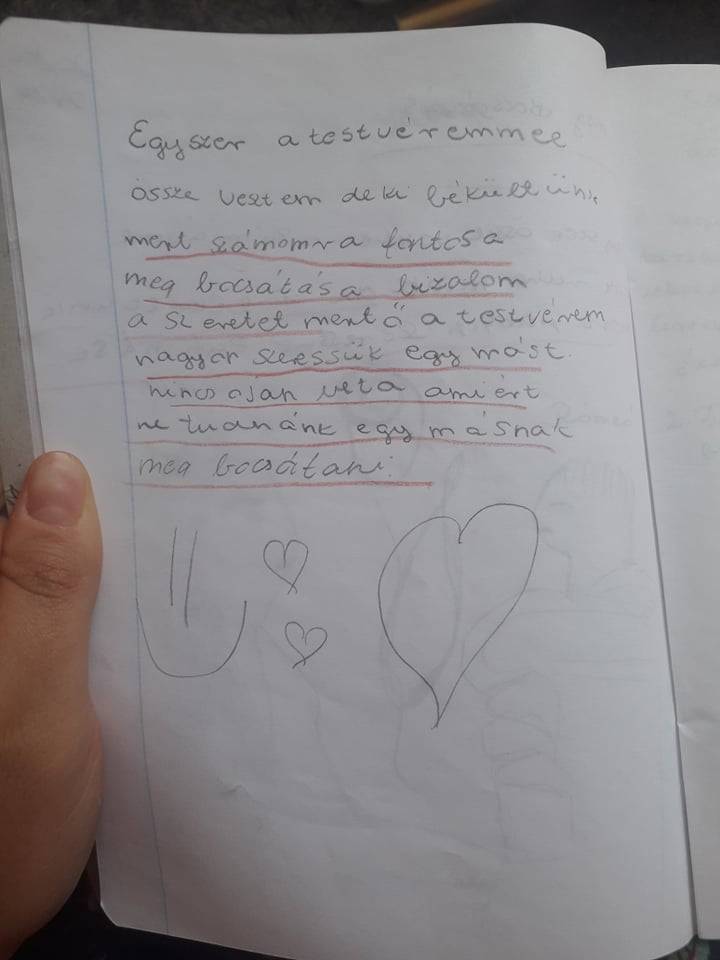 Egyszer a testvéremmel
össze vesztem de ki békültünk
mert számomra fontos a
meg bocsátás a bizalom
a szeretet mert ő a testvérem
nagyon szeressük egy mást.
nincs ojan vita amiért
ne tudnánk egy másnak
meg bocsátani.